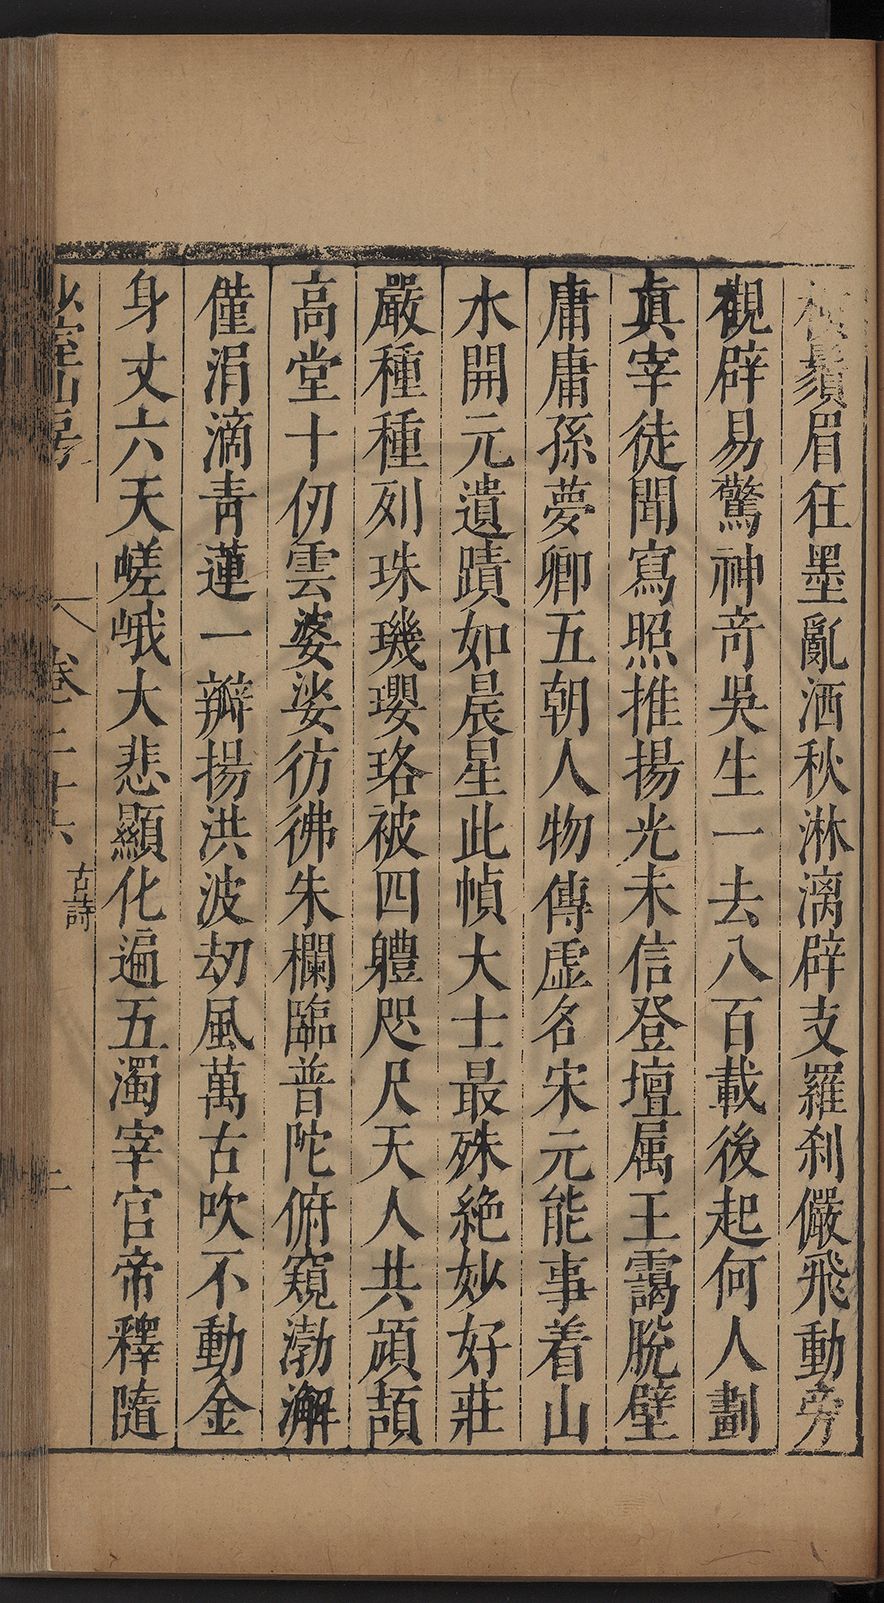 鬚眉任墨亂洒秋淋漓辟支羅刹儼飛動旁
觀辟易驚神竒吳生一去八百載後起何人劃
眞宰徒聞寫照推揚光未信登壇属王靄脫壁
庸庸孫夢卿五朝人物傳虛名宋元能事着山
水開元遺蹟如晨星此幀大士最殊絶妙好莊
嚴種種列珠璣瓔珞被四軆咫尺天人共頏頡
高堂十仞雲婆娑彷彿朱欄臨普陀俯窺渤澥
僅涓滴青蓮一瓣揚洪波刼風萬古吹不動金
身丈六天嵯峨大悲顯化遍五濁宰官帝釋隨
少室山房
卷二十六
古詩
二